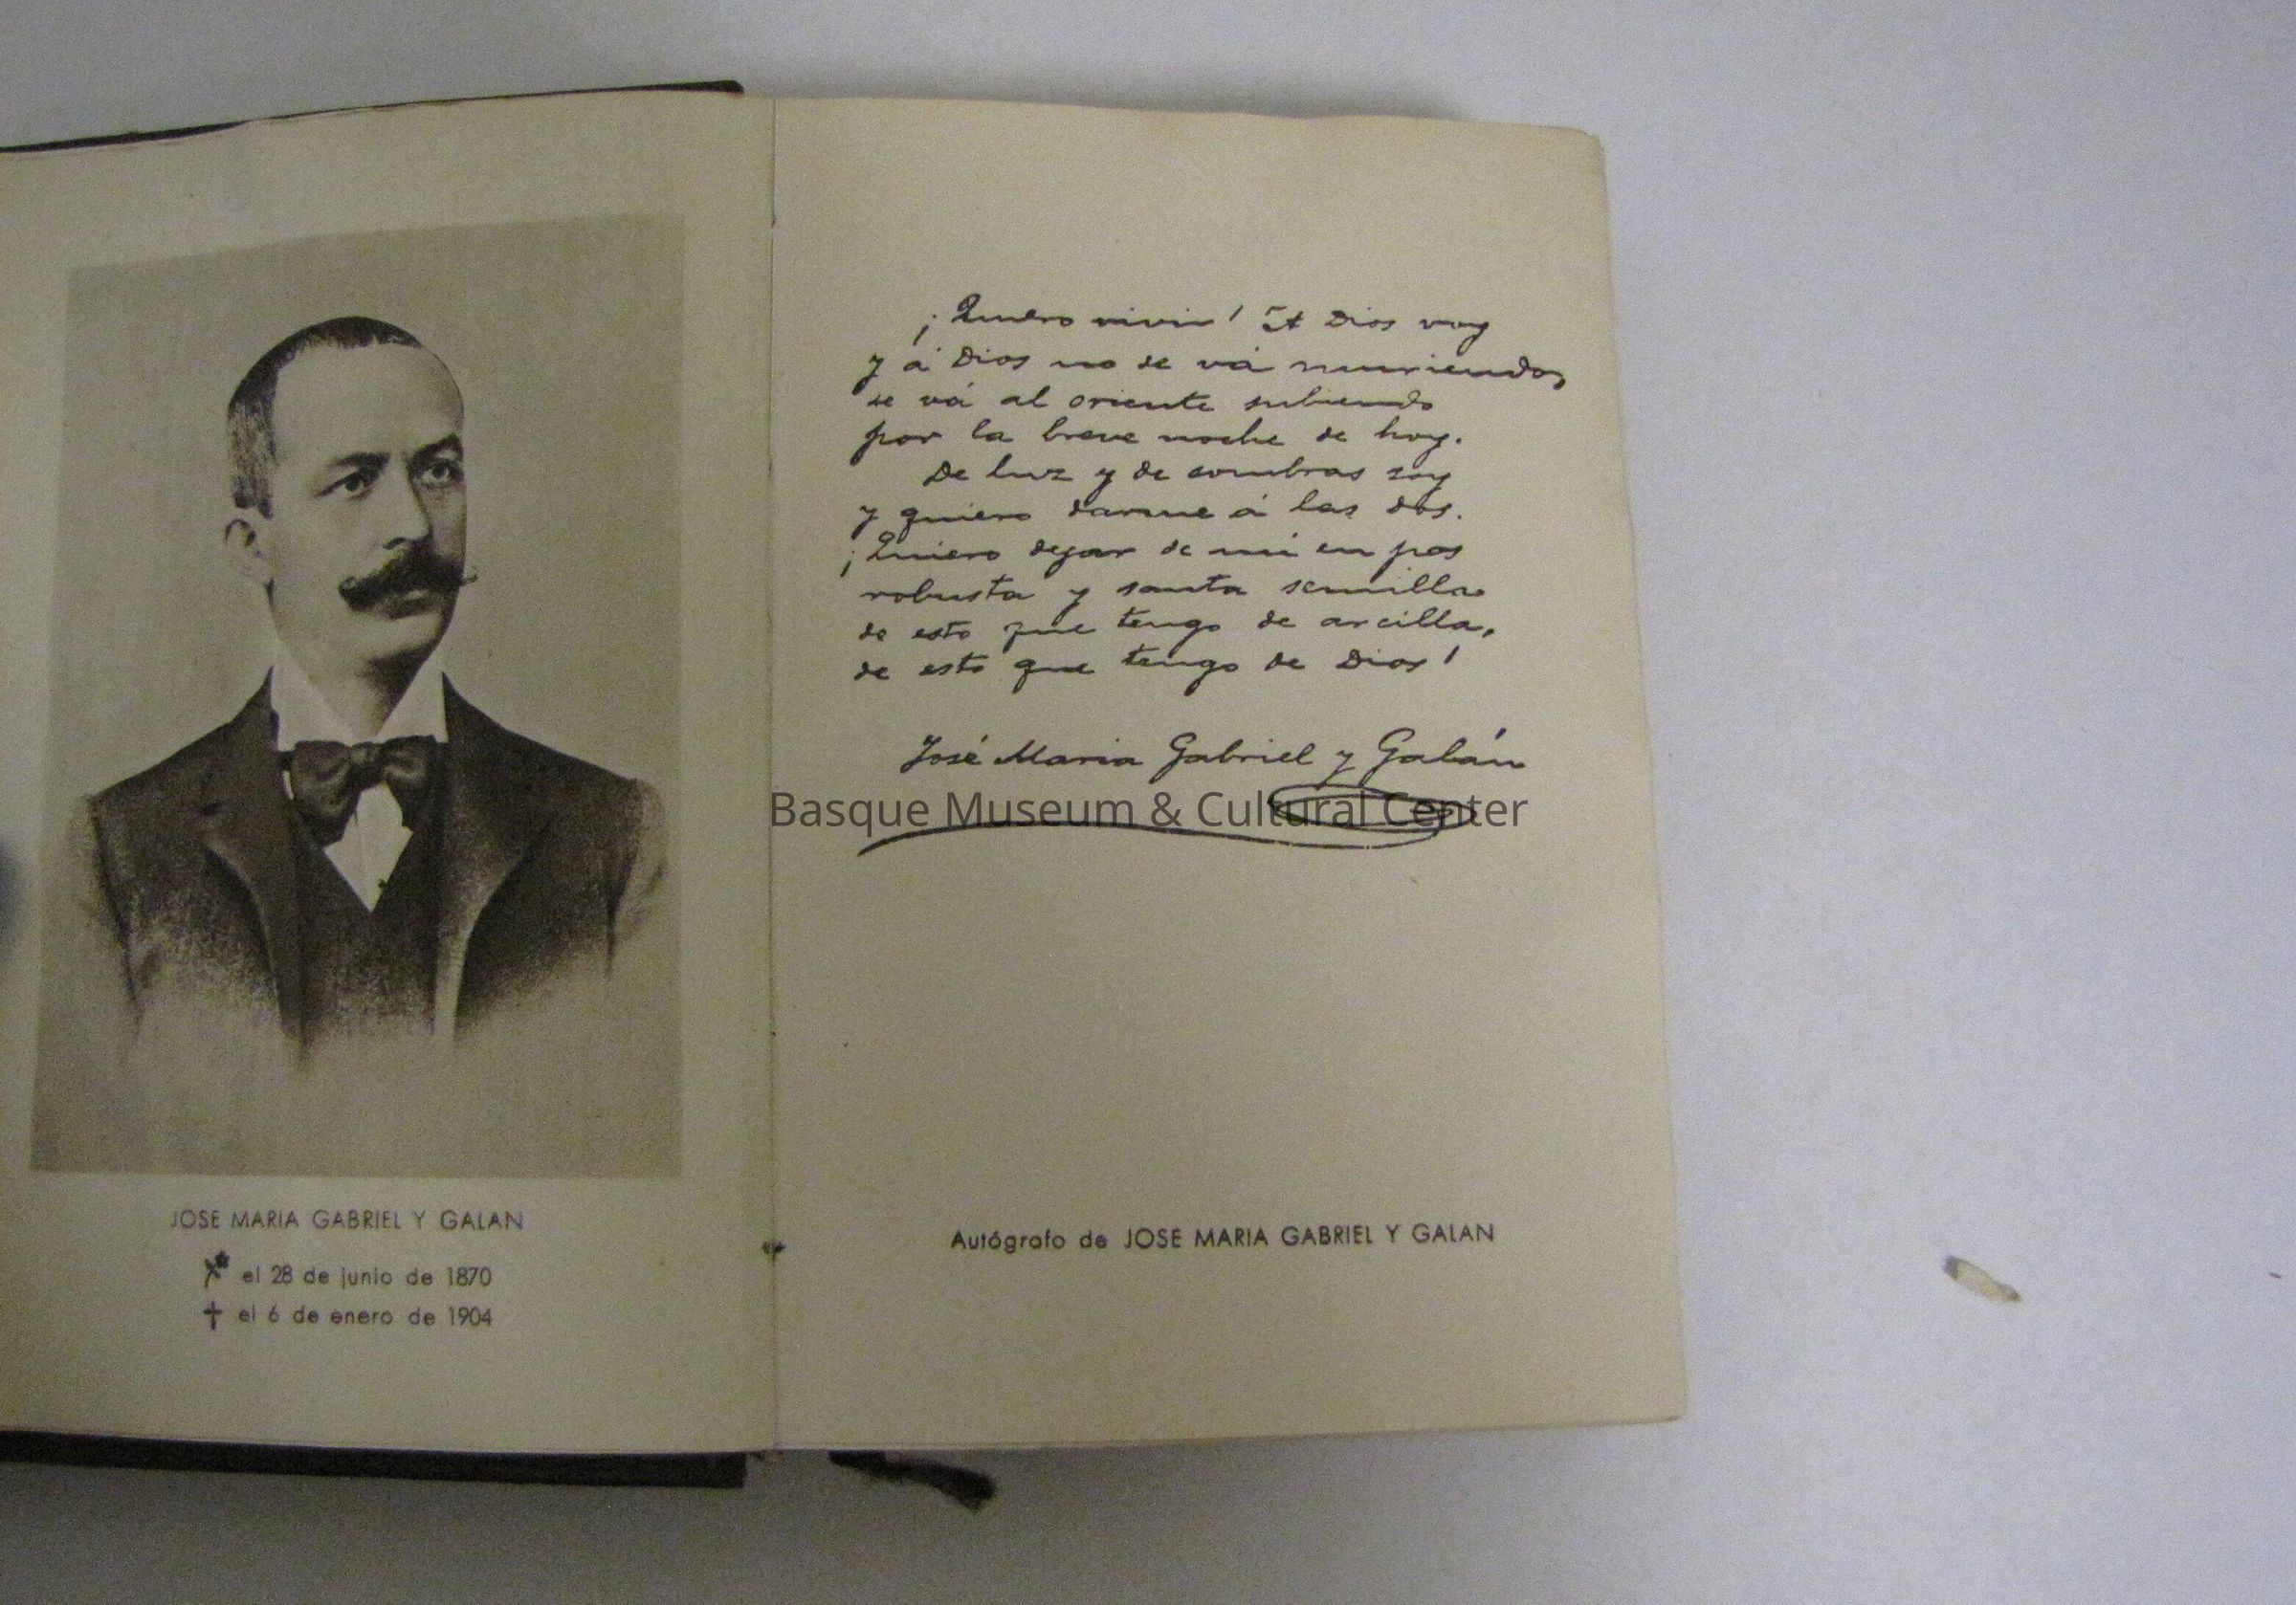 JOSE MARIA GABRIEL Y GALAN
el 28 de junio de 1870
✝ el 6 de enero de 1904
¡Quiero vivir! A Dios voy
y á Dios no se vá muriendo,
se vá al oriente subiendo
por la breve noche de hoy.
De luz y de sombras soy
y quiero darme á las dos.
¡Quiero dejar de mí en pos
robusta y santa semilla
de esto que tengo de arcilla,
de esto que tengo de Dios!
José Maria Gabriel y Galán
Basque Museum & Cultural Center
Autógrafo de JOSE MARIA GABRIEL Y GALAN